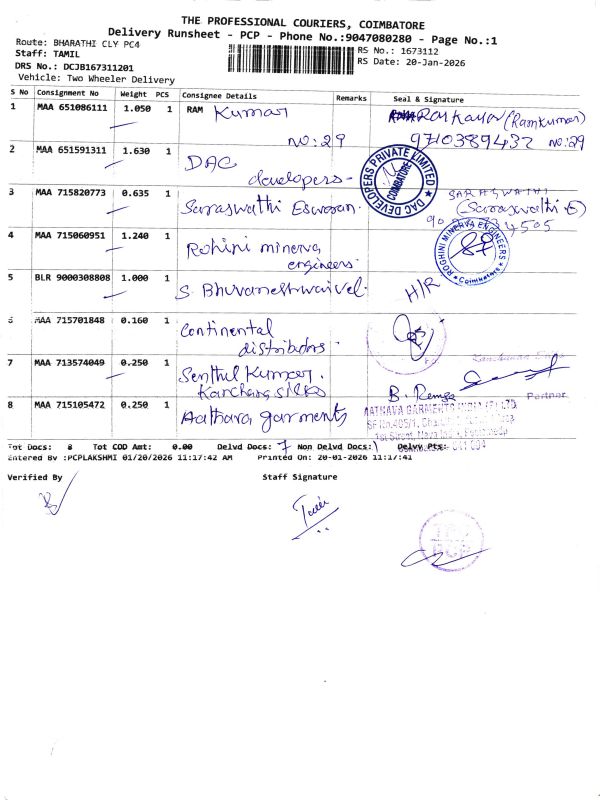 THE PROFESSIONAL COURIERS, COIMBATORE
Delivery Runsheet - PCP - Phone No.:9047080280 - Page No.:1
Route: BHARATHI CLY PC4
RS No.: 1673112
Staff: TAMIL
RS Date: 20-Jan-2026
DRS No.: DCJB167311201
Vehicle: Two Wheeler Delivery
S No Consignment No Weight PCS Consignee Details Remarks Seal & Signature
1 MAA 651086111 1.050 1 RAM Kumar (Ramkumar)
no:29 9710389432 no:29
2 MAA 651591311 1.630 1 DAC
developers- DAC DEVELOPERS PRIVATE LIMITED COIMBATORE
3 MAA 715820773 0.635 1 Saraswathi Eswaran. SARASWATHI
(Saraswathi E)
4 MAA 715060951 1.240 1 Rohini minerva
engineers. ROGHINI MINERVA ENGINEERS Coimbatore
5 BLR 9000308808 1.000 1 S. Bhuvaneshwaivel. H/R
6 MAA 715701848 0.160 1 Continental
distributors.
7 MAA 713574049 0.250 1 Senthil Kumar.
Kanchana silks B. Renga Partner
8 MAA 715105472 0.250 1 Aathava garments AATHAVA GARMENTS INDIA (P) LTD
SF No.405/1,
1st Street, Nava India,
Tot Docs: 8 Tot COD Amt: 0.00 Delvd Docs: 7 Non Delvd Docs: 1 Delvy Pts:
Entered By :PCPLAKSHMI 01/20/2026 11:17:42 AM Printed On: 20-01-2026 11:17:41
Verified By Staff Signature